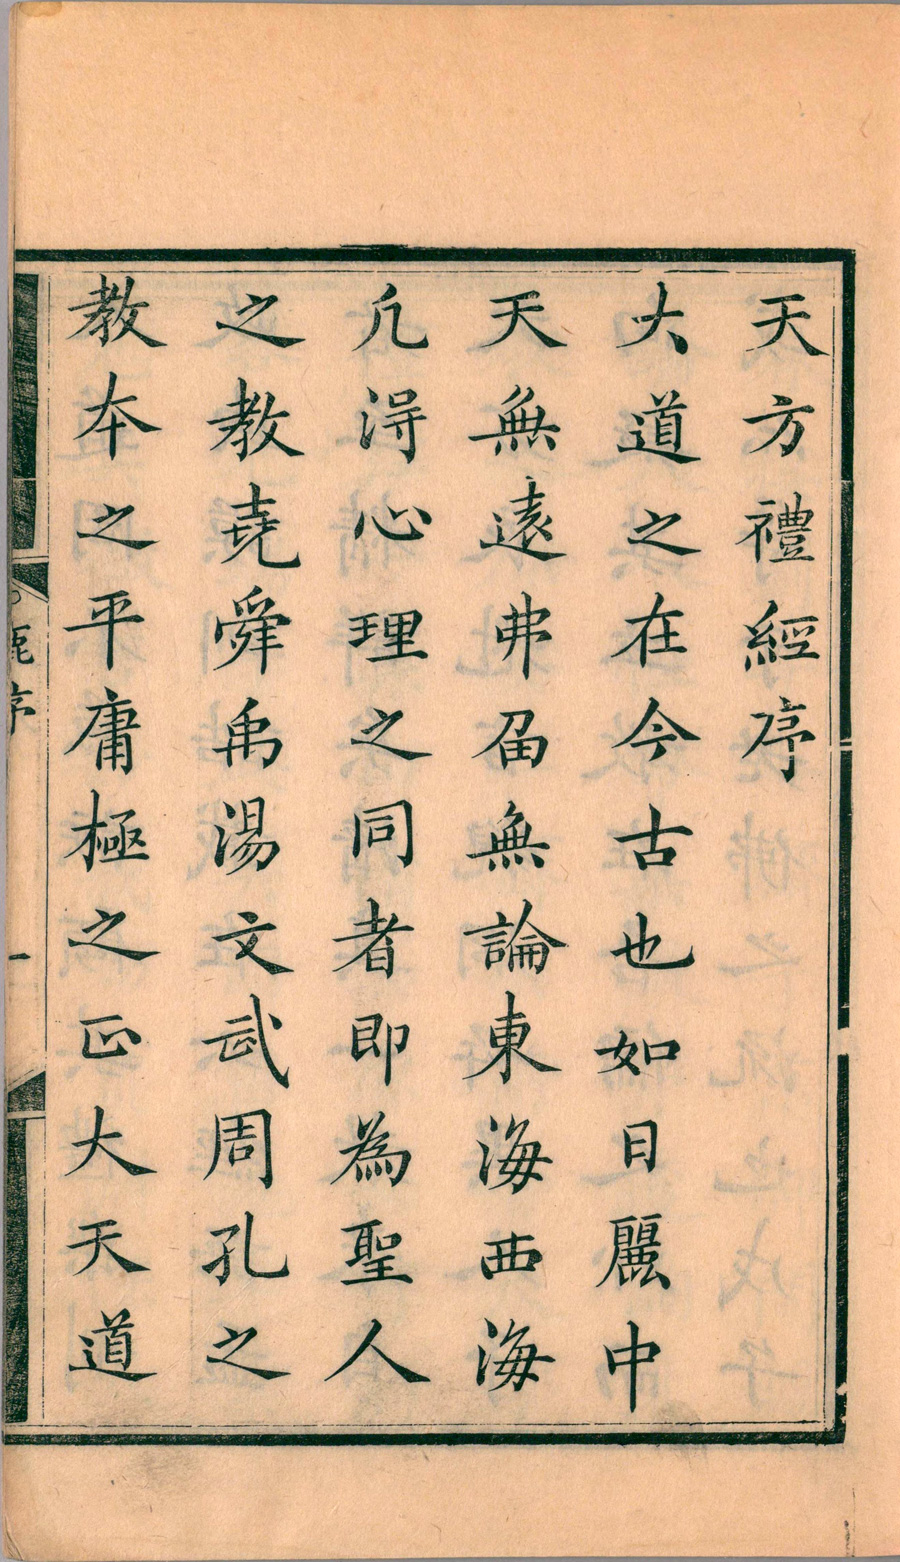 天方禮經序
大道之在今古也如日麗中
天無遠弗届無論東海西海
凢淂心理之同者即為聖人
之教堯舜禹湯文武周孔之
教本之平庸極之正大天道
鹿序
一